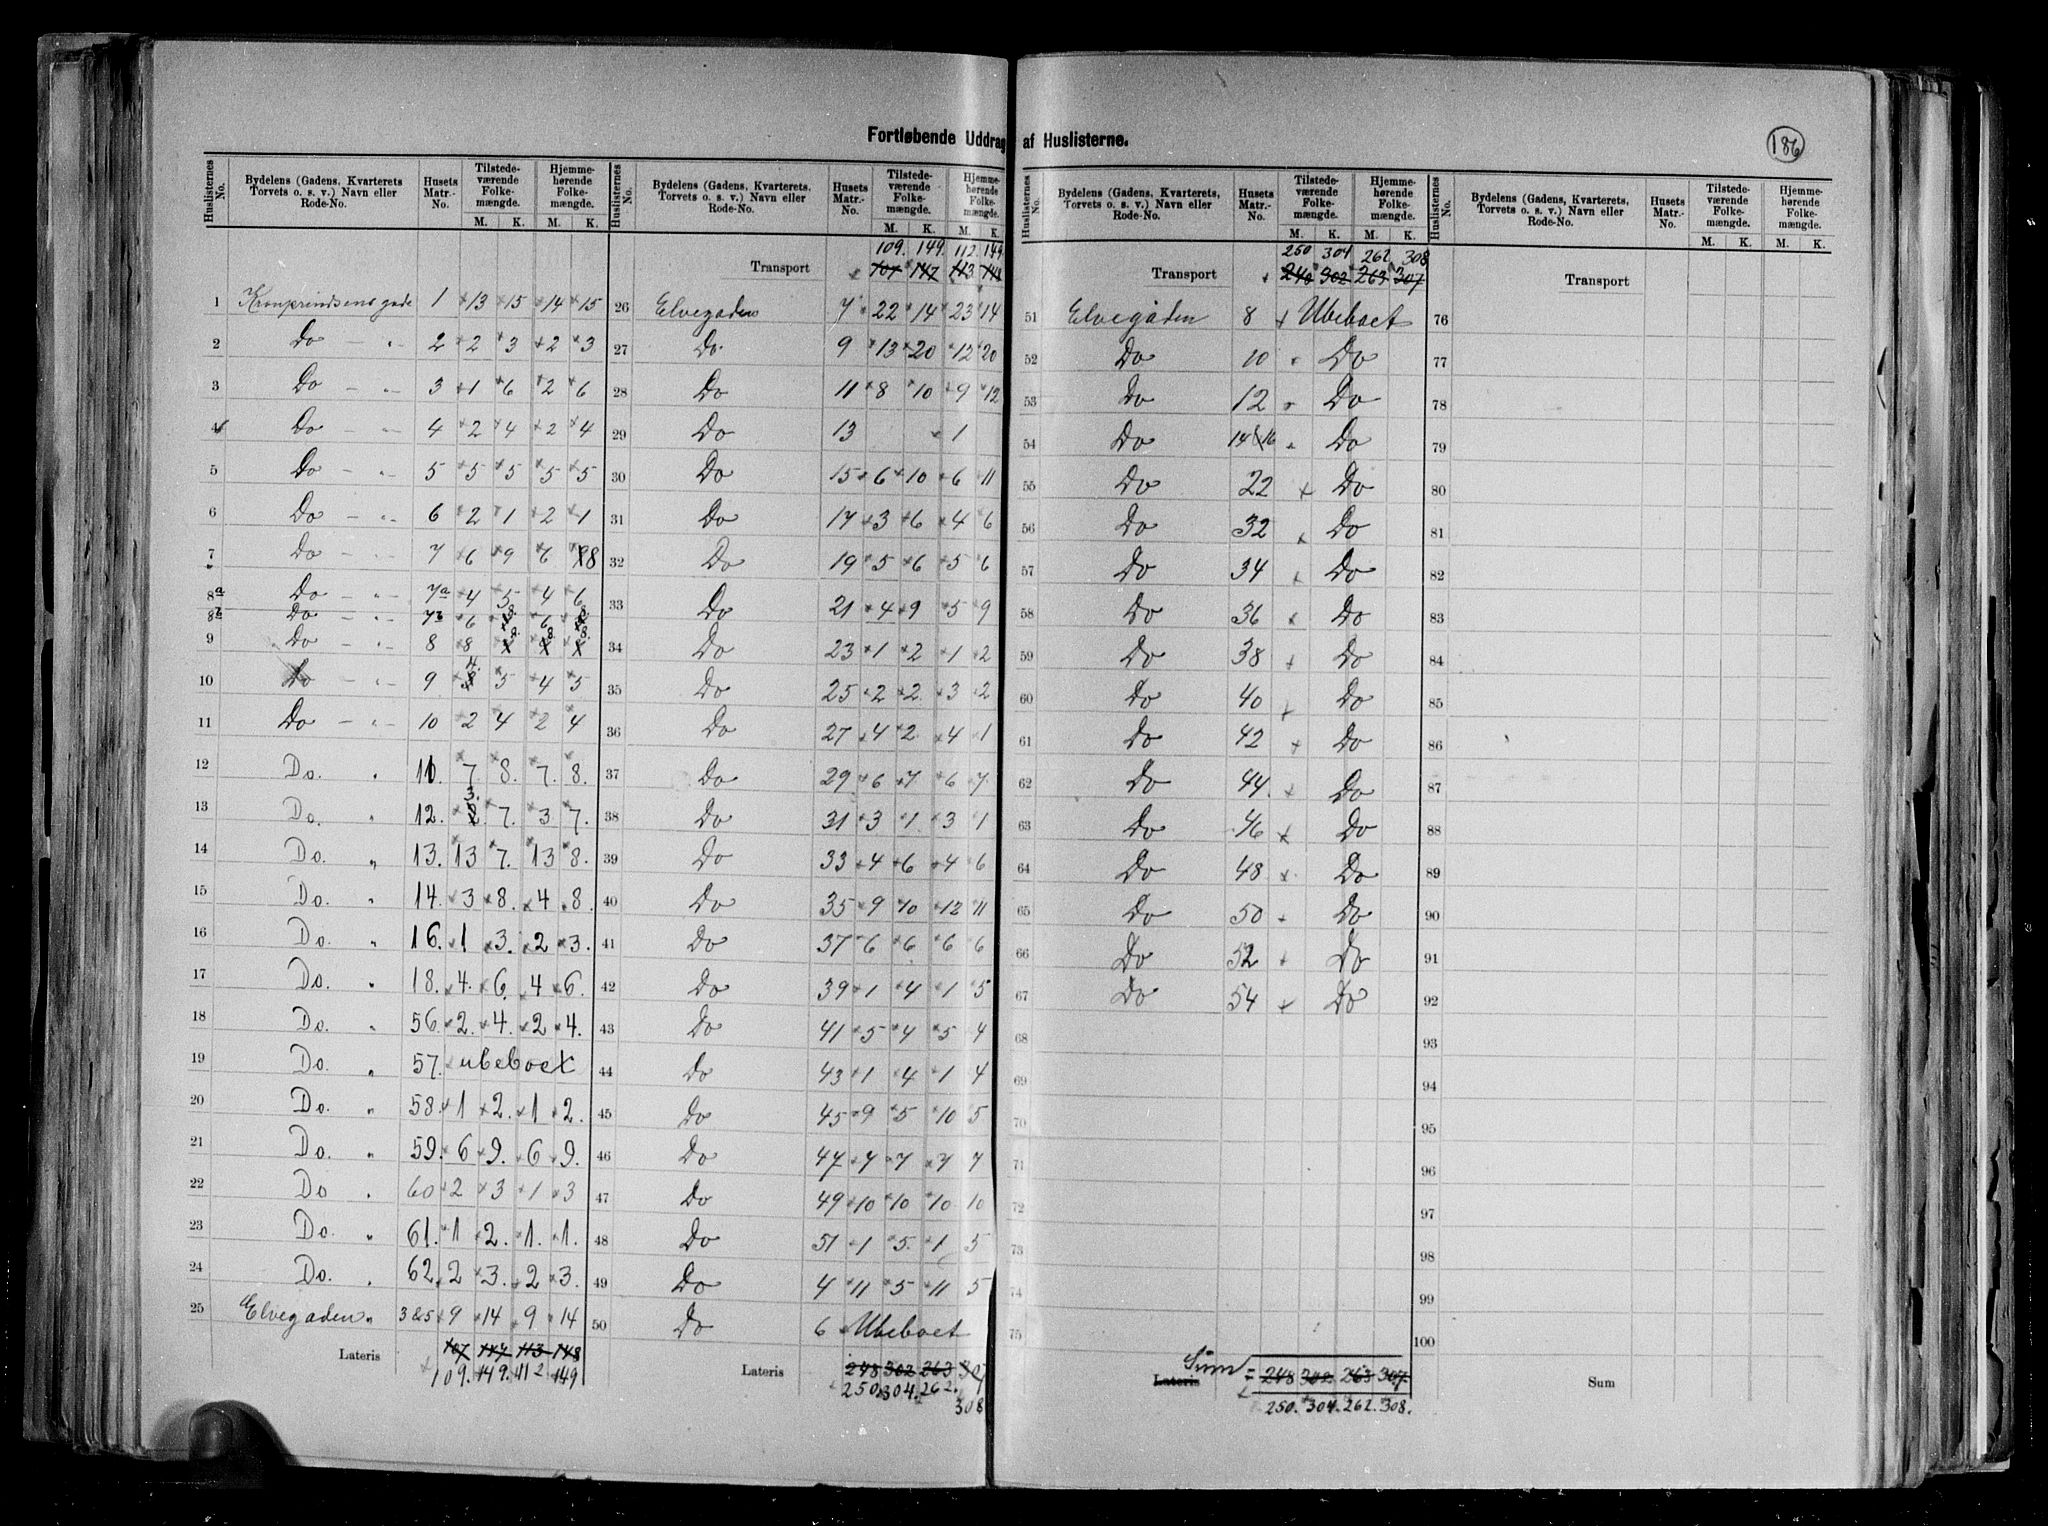 Fortløbende Uddrag af Huslisterne.
186
Huslisternes No. | Bydelens (Gadens, Kvarterets Torvets o. s. v.) Navn eller Rode-No. | Husets Matr.-No. | Tilstedeværende Folkemængde. M. K. | Hjemmehørende Folkemængde. M. K.
1 Kronprindsens gade 1 13 15 14 15
2 Do - „- 2 2 3 2 3
3 Do - „- 3 1 6 2 6
4 Do - „- 4 2 4 2 4
5 Do - „- 5 5 5 5 5
6 Do - „- 6 2 1 2 1
7 Do - „- 7 6 9 6 8
8a Do - „- 7a 4 5 4 6
8b Do - „- 7b 6 8 6 8
9 Do - „- 8 8 8 8 8
10 Do - „- 9 4 5 4 5
11 Do - „- 10 2 4 2 4
12 Do. „ 11. 7. 8. 7. 8.
13 Do. „ 12. 3. 7. 3 7.
14 Do. „ 13. 13 7. 13 8.
15 Do. „ 14. 3 8. 4 8.
16 Do. „ 16. 1 3. 2 3.
17 Do. „ 18. 4. 6. 4 6.
18 Do. „ 56. 2. 4. 2 4.
19 Do. „ 57. ubeboet
20 Do. „ 58. 1 2. 1 2.
21 Do. „ 59. 6 9. 6 9.
22 Do „ 60 2 3 1 3
23 Do. „ 61. 1 2. 1. 1.
24 Do. „ 62. 2 3. 2 3.
25 Elvegaden „ 3&5 9 14 9 14
Lateris 107 147 113 148
109. 149. 112 149
Huslisternes No. | Bydelens (Gadens, Kvarterets, Torvets o. s. v.) Navn eller Rode-No. | Husets Matr.-No. | Tilstedeværende Folkemængde. M. K. | Hjemmehørende Folkemængde. M. K.
109. 149. 112. 149
Transport 107 147 113 148
26 Elvegaden 7 22 14 23 14
27 Do. 9 13 20 12 20
28 Do 11 8 10 9 12
29 Do 13 1
30 Do 15 6 10 6 11
31 Do 17 3 6 4 6
32 Do 19 5 6 5 6
33 Do 21 4 9 5 9
34 Do 23 1 2 1 2
35 Do 25 2 2 3 2
36 Do 27 4 2 4 1
37 Do 29 6 7 6 7
38 Do 31 3 1 3 1
39 Do 33 4 6 4 6
40 Do 35 9 10 12 11
41 Do 37 6 6 6 6
42 Do 39 1 4 1 5
43 Do 41 5 4 5 4
44 Do 43 1 4 1 4
45 Do 45 9 5 10 5
46 Do 47 7 7 7 7
47 Do 49 10 10 10 10
48 Do 51 1 5 1 5
49 Do 4 11 5 11 5
50 Do 6 Ubeboet
Lateris 248 302 263 307
250. 304. 262. 308
Huslisternes No. | Bydelens (Gadens, Kvarterets, Torvets o. s. v.) Navn eller Rode-No. | Husets Matr.-No. | Tilstedeværende Folkemængde. M. K. | Hjemmehørende Folkemængde. M. K.
250 304 262 308
Transport 248 302 263 307
51 Elvegaden 8 Ubeboet
52 Do 10 Do
53 Do 12 Do
54 Do 14&16 Do
55 Do 22 Do
56 Do 32 Do
57 Do 34 Do
58 Do 36 Do
59 Do 38 Do
60 Do 40 Do
61 Do 42 Do
62 Do 44. Do
63 Do 46 Do
64 Do 48 Do
65 Do 50 Do
66 Do 52 Do
67 Do 54 Do
68
69
70
71
72
73
74
75
Lateris Sum = 248 302 263 307.
250. 304. 262. 308.
Huslisternes No. | Bydelens (Gadens, Kvarterets, Torvets o. s. v.) Navn eller Rode-No. | Husets Matr.-No. | Tilstedeværende Folkemængde. M. K. | Hjemmehørende Folkemængde. M. K.
Transport
76
77
78
79
80
81
82
83
84
85
86
87
88
89
90
91
92
93
94
95
96
97
98
99
100
Sum